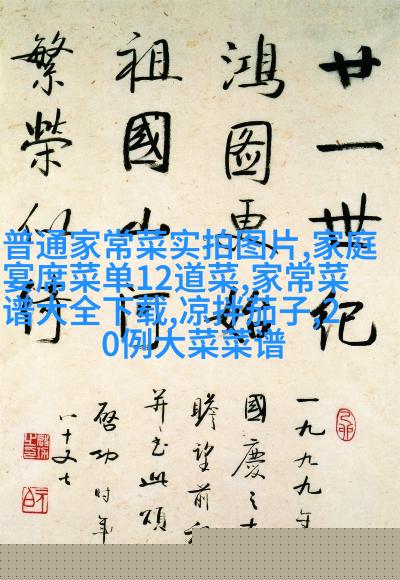 普通家常菜实拍图片,家庭
宴席菜单12道菜,家常菜
谱大全下载,凉拌茄子,2
0例大菜菜谱
廿一世纪
鸿图更始
祖國山河
繁荣似
一九九九年
國慶之
瞻望前
并書此頌
啓功时年
八十又七